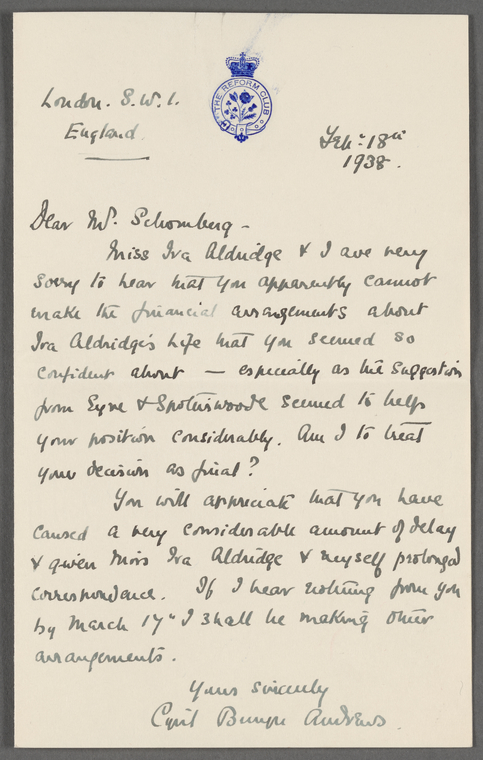 THE REFORM CLUB
London. S.W.1.
England.
Feb: 18th
1938.
Dear Mr. Schomberg -
Miss Ira Aldridge & I are very
sorry to hear that you apparently cannot
make the financial arrangements about
Ira Aldridge's Life that you seemed so
confident about — especially as the suggestion
from Eyre & Spottiswoode seemed to help
your position considerably. Am I to treat
your decision as final?
You will appreciate that you have
caused a very considerable amount of delay
& given Miss Ira Aldridge & myself prolonged
correspondence. If I hear nothing from you
by March 17th I shall be making other
arrangements.
Yours sincerely
Cyril Bruyn Andrews.